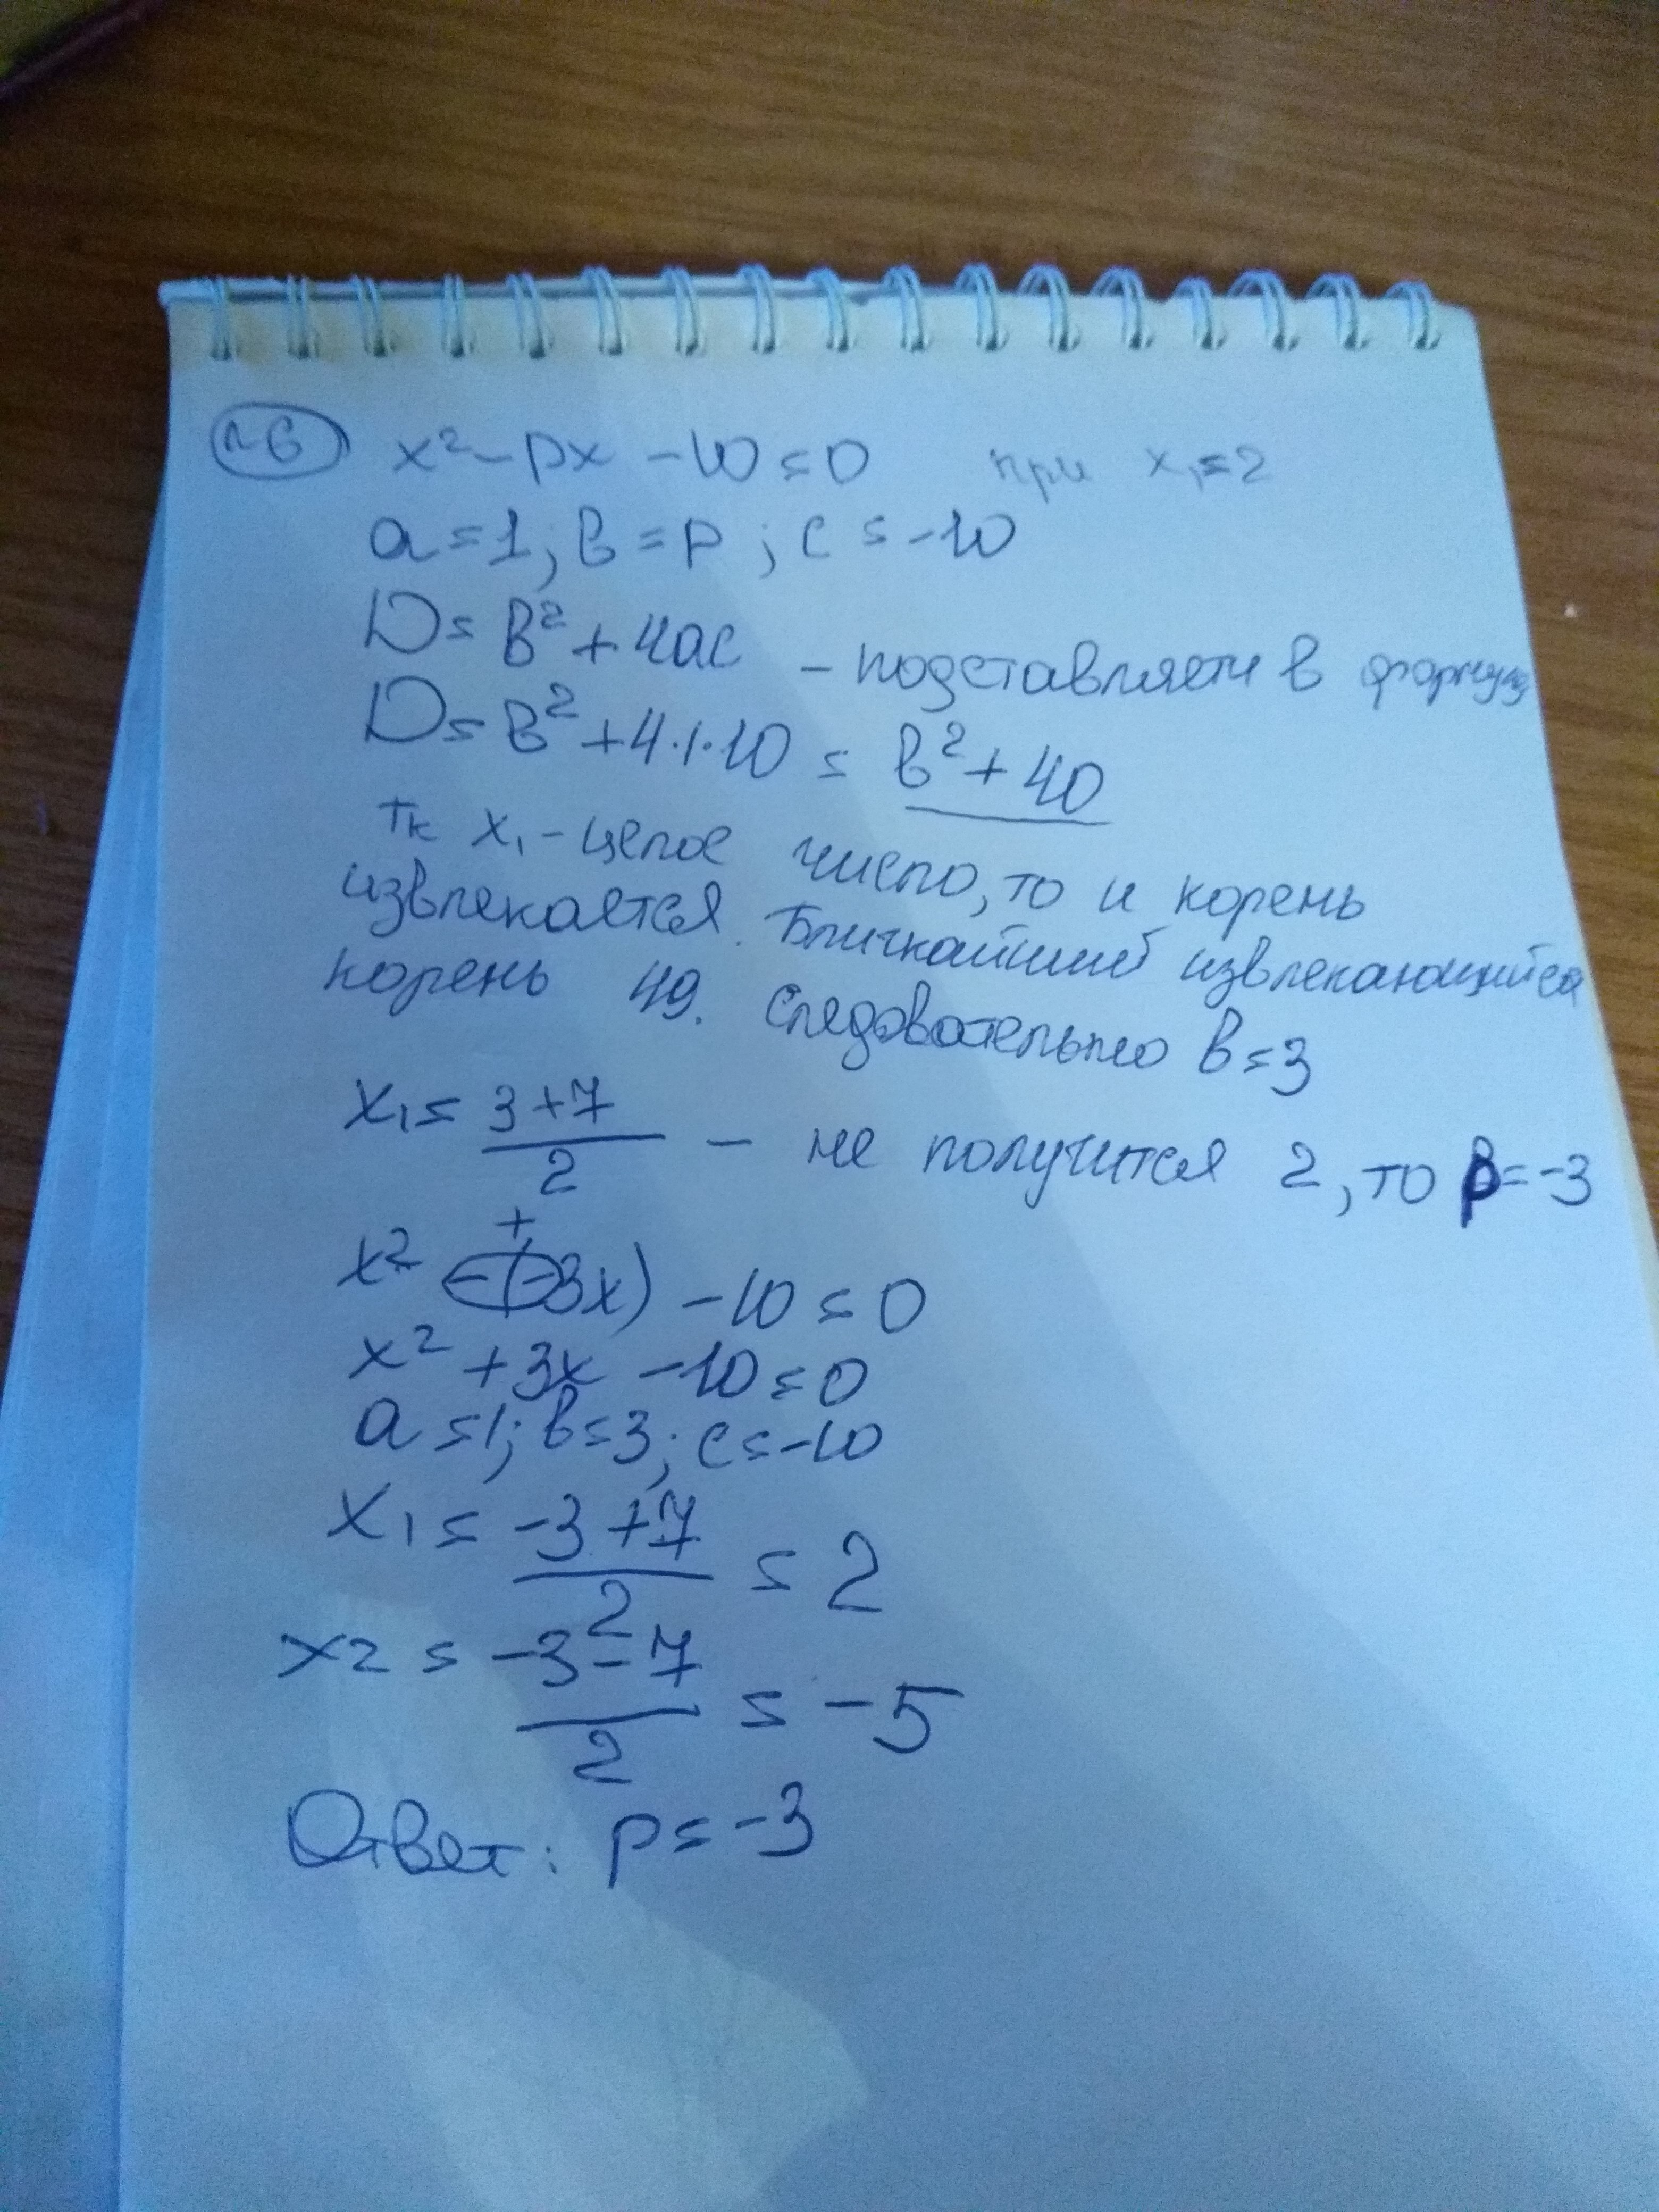 №6 x² - px - 10 = 0 при x₁ = 2
a = 1; b = p; c = -10
D = b² + 4ac - подставляем в формулу
D = b² + 4·1·10 = b² + 40
тк x₁ - целое число, то и корень
извлекается. Ближайший извлекающийся
корень 49. Следовательно b = 3
x₁ = (3 + 7)/2 - не получится 2, то p = -3
x² -(-3x) - 10 = 0
+
x² + 3x - 10 = 0
a = 1; b = 3; c = -10
x₁ = (-3 + 7)/2 = 2
x2 = (-3 - 7)/2 = -5
Ответ: p = -3